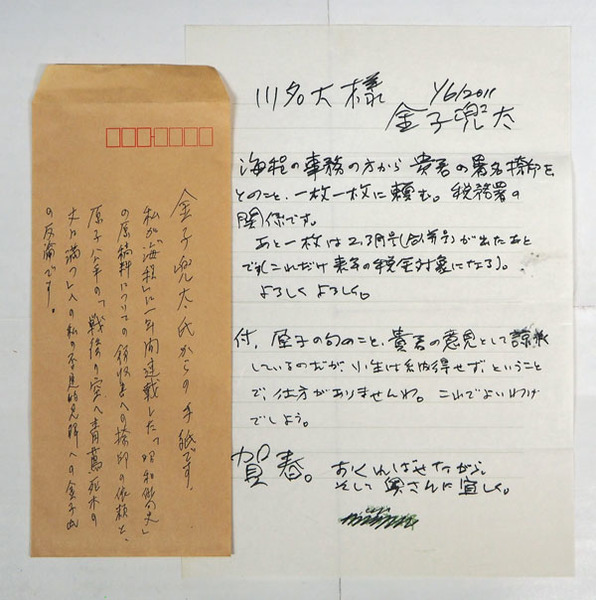 金子兜太氏からの手紙です。
私が「海程」に一年間連載した「昭和俳句史」
の原稿料についての領収書への捺印の依頼と、
原子公平の「戦後の空へ青蔦死木の
丈に満つ」への私の否定的見解への金子氏
の反論です。
川名大様
1/6/2011
金子兜太
海程の事務の方から貴君の署名捺印を
とのこと、一枚一枚に頼む。税務署の
関係です。
あと一枚は2.3月号(合併号)が出たあと
です(これだけ来年の税金対象になる)。
よろしくよろしく。
付、原子の句のこと、貴君の意見として諒承
しているのだが、小生は納得せず、ということ
で、仕方がありませんね。これでよいわけ
でしょう。
賀春。おくればせながら、
そして奥さんに宜しく。